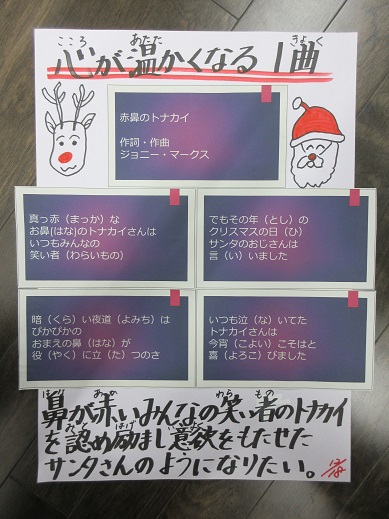 心が温かくなる1曲
こころ あたた きょく
赤鼻のトナカイ
作詞・作曲
ジョニー・マークス
真っ赤（まっか）な
お鼻(はな)のトナカイさんは
いつもみんなの
笑い者（わらいもの）
でもその年（とし）の
クリスマスの日（ひ）
サンタのおじさんは
言（い）いました
暗（くら）い夜道（よみち）は
ぴかぴかの
おまえの鼻（はな）が
役（やく）に立（た）つのさ
いつも泣（な）いてた
トナカイさんは
今宵（こよい）こそはと
喜（よろこ）びました
鼻が赤いみんなの笑い者のトナカイ
を認め励まし意欲をもたせた
サンタさんのようになりたい。